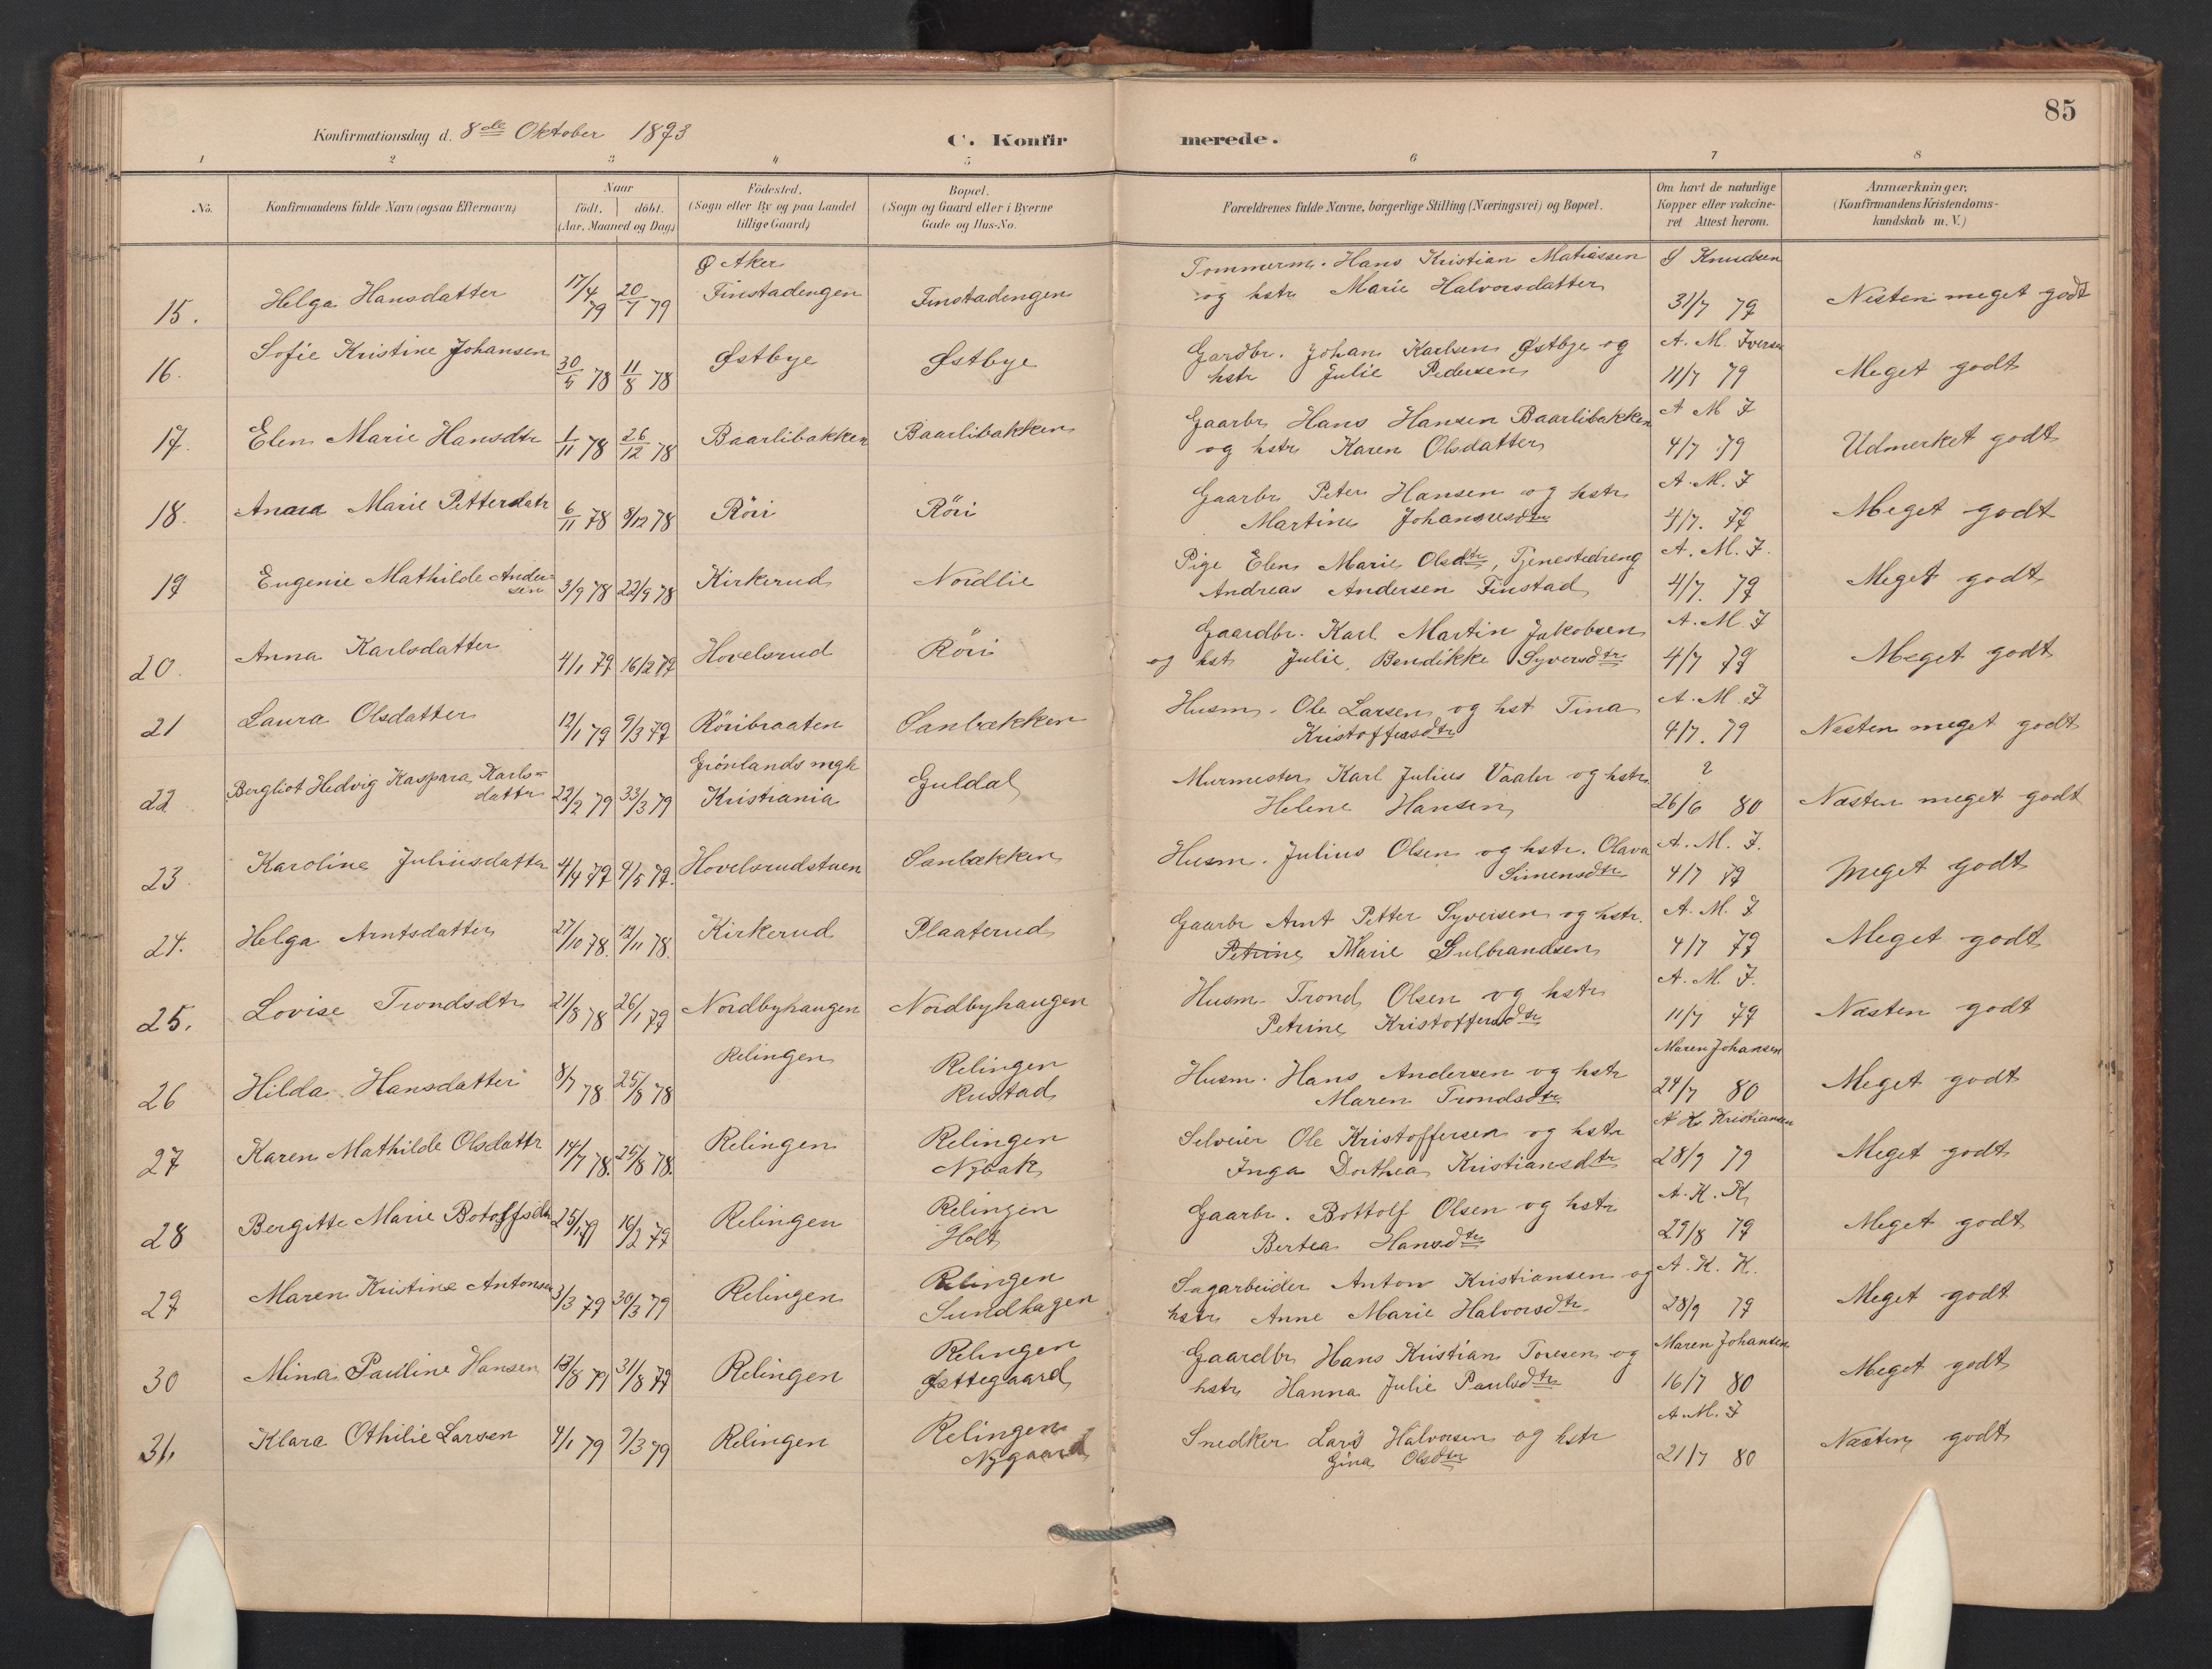 85
Konfirmationsdag d. 8de Oktober 1893
C. Konfirmerede.
1 2 3 4 5 6 7 8
No.
Konfirmandens fulde Navn (ogsaa Efternavn)
Naar
födt. döbt.
(Aar, Maaned og Dag)
Födested.
(Sogn eller By og paa Landet
tillige Gaard)
Bopæl.
(Sogn og Gaard eller i Byerne
Gade og Hus-No.
Forældrenes fulde Navne, borgerlige Stilling (Næringsvei) og Bopæl.
Om havt de naturlige
Kopper eller vakcine-
ret Attest herom.
Anmærkninger,
(Konfirmandens Kristendoms-
kundskab m. V.)
15. Helga Hansdatter 17/4 79 20/7 79 Ø Aker
Finstadengen Finstadengen Tømmerm. Hans Kristian Matiassen
og hstr Marie Halvorsdatter Knudsen
31/7 79 Nesten meget godt
16. Sofie Kristine Johansen 30/5 78 11/8 78 Østbye Østbye Gardbr. Johan Karlsen Østbye og
hstr Julie Pedersen A. M. Iversen
11/7 79 Meget godt
17. Elen Marie Hansdtr 1/11 78 26/12 78 Baarlibakken Baarlibakken Gaarbr Hans Hansen Baarlibakken
og hstr Karen Olsdatter A M I
4/7 79 Udmerket godt
18. Anna Marie Petterdatr 6/11 78 8/12 78 Röri Röri Gaarbr Peter Hansen og hstr
Martine Johannesdtr A. M. I
4/7. 79 Meget godt
19 Eugenie Mathilde Ander-
sen 3/9 78 22/9 78 Kirkerud Nordlie Pige Elen Marie Olsdtr, Tjenestedreng
Andreas Andersen Finstad A. M. I.
4/7. 79 Meget godt
20. Anna Karlsdatter 4/1 79 16/2 79 Hovelsrud Röri Gaardbr. Karl Martin Jakobsen
og hst Julie Bendikke Syversdtr A. M. I
4/7 79 Meget godt
21 Laura Olsdatter 12/1 79 9/3 79 Röribraaten Sanbækken Husm. Ole Larsen og hst Tina
Kristoffersdtr A. M. I
4/7. 79 Næsten meget godt
22 Bergliot Hedvig Kaspara Karls-
datter 22/2 79 33/3 79 Grönlands mgh
Kristiania Guldal Murmester Karl Julius Vaaler og hstr
Helene Hansen ?
26/6 80 Næsten meget godt
23 Karoline Juliusdatter 4/4 79 4/5 79. Hovelsrudstuen Sanbækken Husm. Julius Olsen og hstr. Olava
Simensdtr A. M. I.
4/7 79 Meget godt
24. Helga Arntsdatter 27/10 78. /11 78. Kirkerud Plaaterud Gaarbr Arnt Petter Syversen og hstr.
Petrine Marie Gulbrandsen A. M. I
4/7 79 Meget godt
25. Lovise Trondsdtr 21/8 78 26/1 79 Nordbyhaugen Nordbyhaugen Husm. Trond Olsen og hstr
Petrine Kristoffersdtr A. M. I.
11/7 79 Næsten godt
26 Hilda Hansdatter 8/7 78 25/8 78 Relingen Relingen
Rustad Husm. Hans Andersen og hstr
Maren Trondsdtr Maren Johansen
24/7 80 Meget godt
27 Karen Mathilde Olsdattr 14/7 78. 25/8 78. Relingen Relingen
Nybak Selveier Ole Kristoffersen og hstr
Inga Dorthea Kristiansdtr A K. Kristiansen
28/9 79 Meget godt
28 Bergitte Marie Botolfsdtr 25/1 79 16/2 79 Relingen Relingen
Holt Gaarbr. Bottolf Olsen og hstr
Bertea Hansdtr A. K. K.
29/8 79 Meget godt
29 Maren Kristine Antonsen 3/3 79 30/3 79 Relingen Relingen
Sundhagen Sagarbeider Anton Kristiansen og
hstr Anne Marie Halvorsdtr A. K. K.
28/9 79 Meget godt
30 Mina Pauline Hansen 13/8 79 31/8 79 Relingen Relingen
Østtegaard Gaardbr Hans Kristian Toresen og
hstr Hanna Julie Paulsdtr Maren Johansen
16/7 80 Meget godt
31. Klara Othilie Larsen 4/1 79 9/3 79 Relingen Relingen
Nygaard Snedker Lars Halvorsen og hstr
Gina Olsdtr A. M. I
21/7 80 Næsten godt